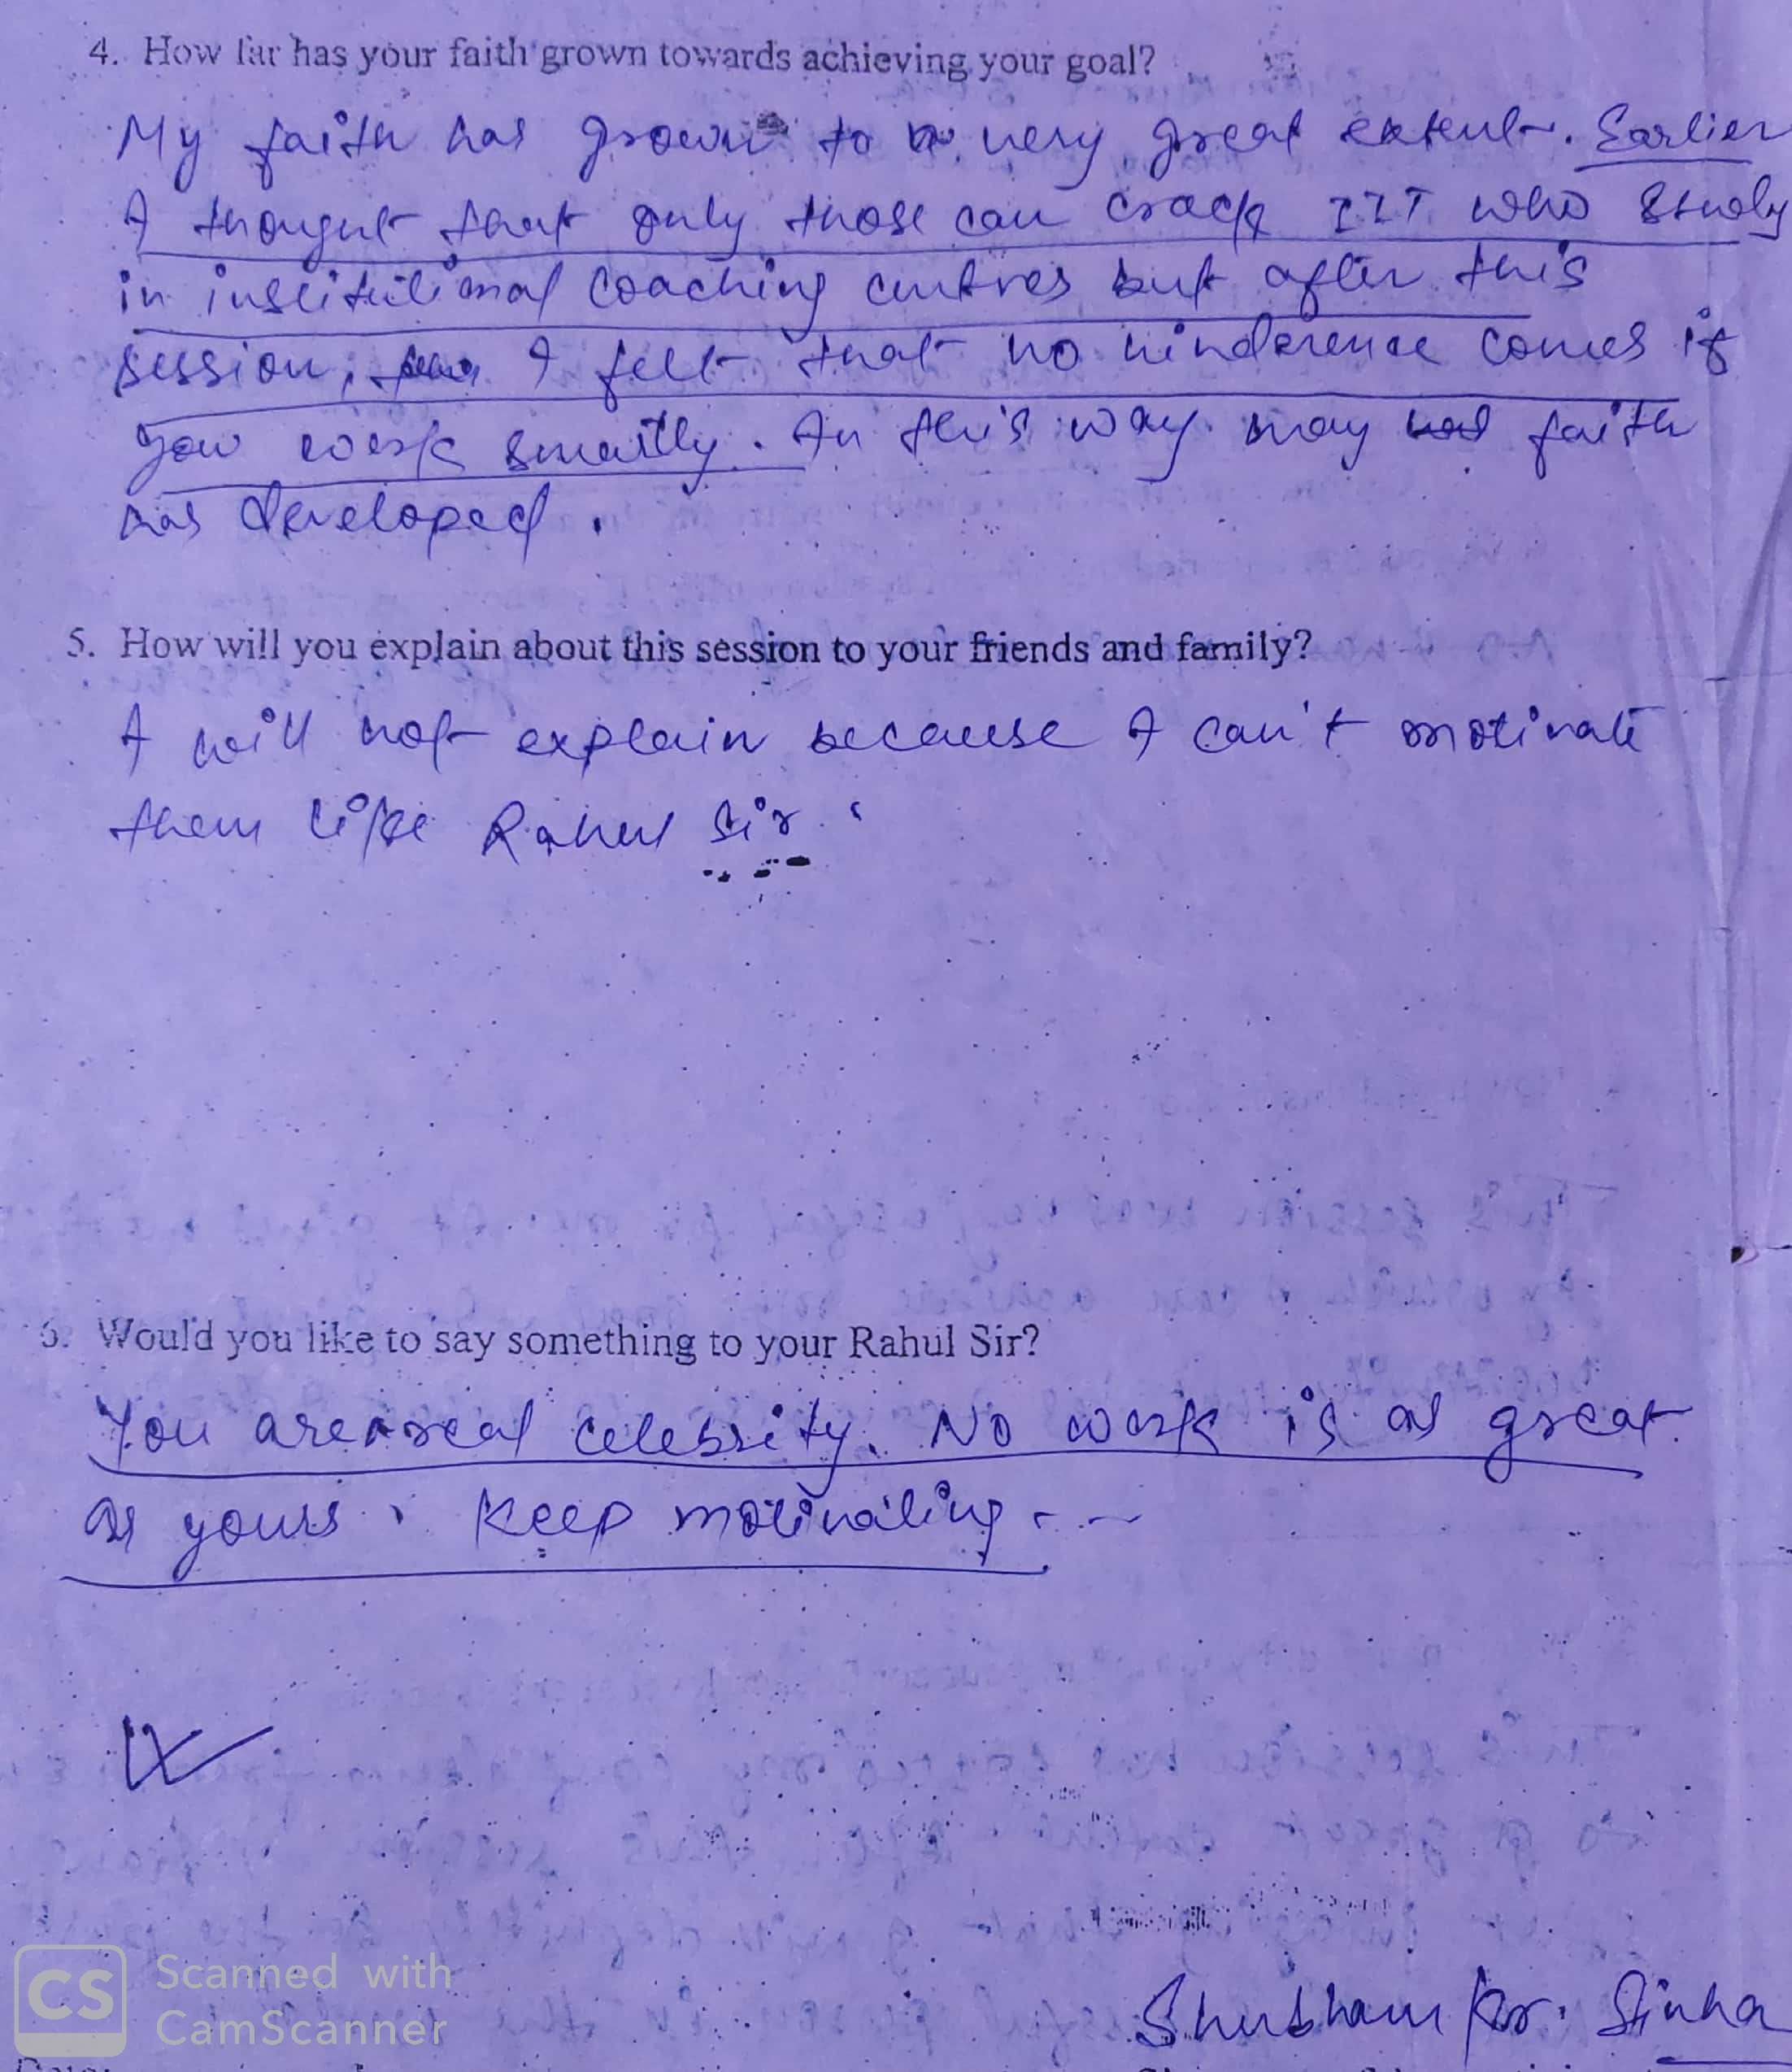 4. How far has your faith grown towards achieving your goal?
My faith has grown to a very great extent. Earlier
I thought that only those can crack IIT who study
in institutional coaching centres but after this
session, I felt that no hinderence comes if
you work smartly. In this way may had faith
has developed.
5. How will you explain about this session to your friends and family?
I will not explain because I can't motivate
them like Rahul Sir.
6. Would you like to say something to your Rahul Sir?
You are a real celebrity. No work is as great
as yours. Keep motivating ---
CS Scanned with
CamScanner
Shubham Kr. Sinha